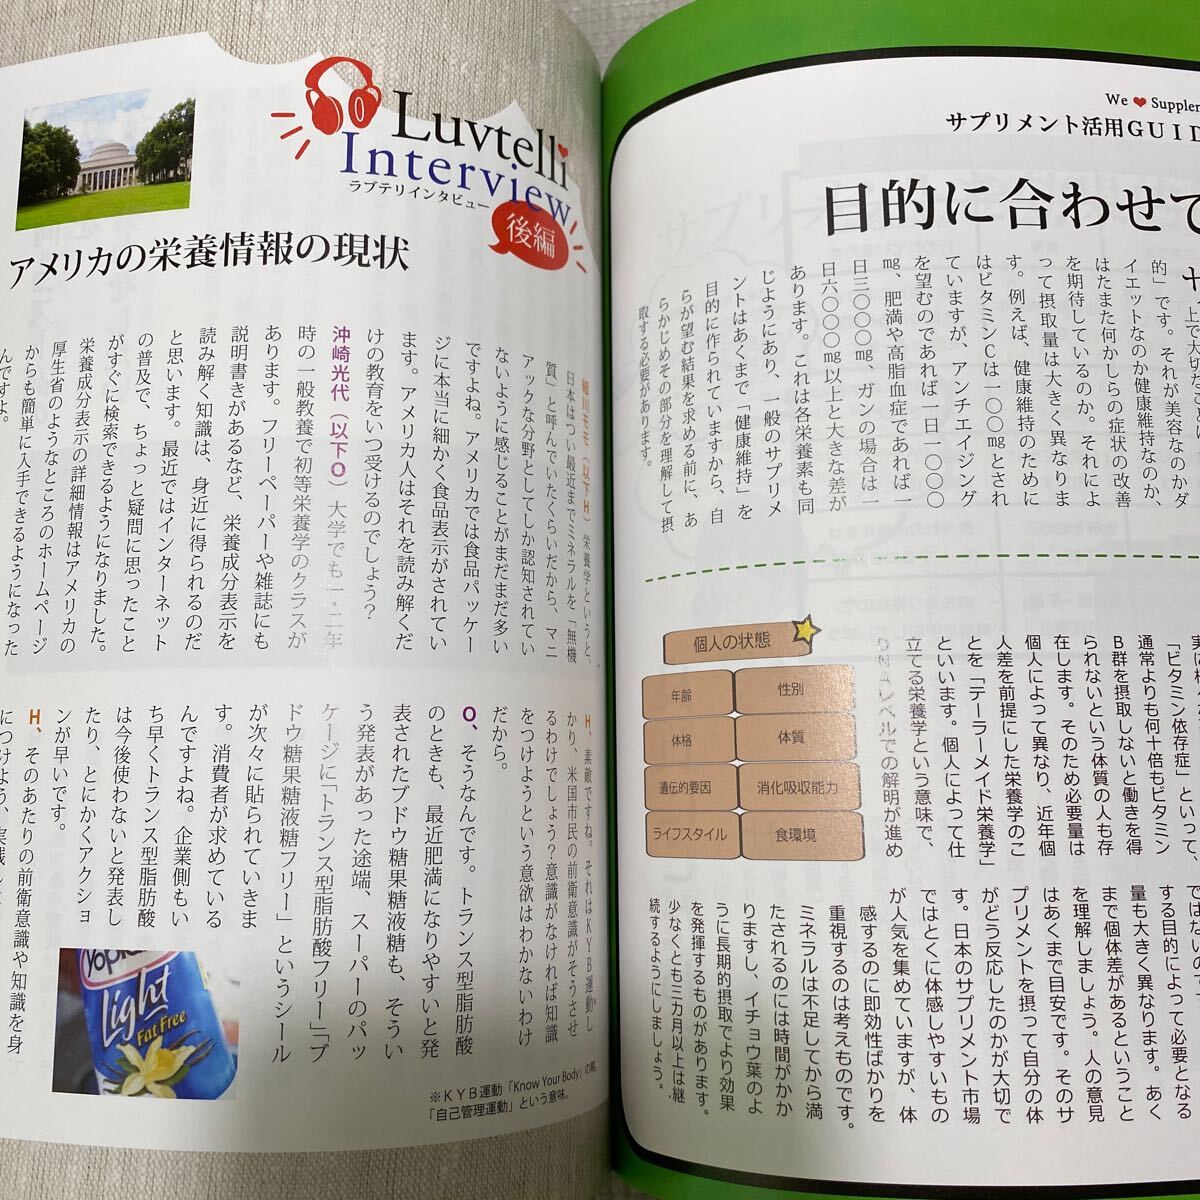 Luvtelli
Interview
ラブテリインタビュー
後編
アメリカの栄養情報の現状
細川モモ（以下H） 栄養学というと、
日本はつい最近までミネラルを「無機
質」と呼んでいたくらいだから、マニ
アックな分野としてしか認知されてい
ないように感じることがまだまだ多い
ですよね。アメリカでは食品パッケー
ジに本当に細かく食品表示がされてい
ます。アメリカ人はそれを読み解くだ
けの教育をいつ受けるのでしょう?
沖崎光代（以下O） 大学でも一・二年
時の一般教養で初等栄養学のクラスが
あります。フリーペーパーや雑誌にも
説明書きがあるなど、栄養成分表示を
読み解く知識は、身近に得られるのだ
と思います。最近ではインターネット
の普及で、ちょっと疑問に思ったこと
がすぐに検索できるようになりました。
栄養成分表示の詳細情報はアメリカの
厚生省のようなところのホームページ
からも簡単に入手できるようになった
んですよ。
H、素敵ですね。それはKYB運動し
かり、米国市民の前衛意識がそうさせ
るわけでしょう?意識がなければ知識
をつけようという意欲はわかないわけ
だから。
O、そうなんです。トランス型脂肪酸
のときも、最近肥満になりやすいと発
表されたブドウ糖果糖液糖も、そうい
う発表があった途端、スーパーのパッ
ケージに「トランス型脂肪酸フリー」「ブ
ドウ糖果糖液糖フリー」というシール
が次々に貼られていきま
す。消費者が求めている
んですよね。企業側もい
ち早くトランス型脂肪酸
は今後使わないと発表し
たり、とにかくアクショ
ンが早いです。
H、そのあたりの前衛意識や知識を身
につけよう、実践し
Light
Fat Free
※KYB運動「Know Your Body」の略。
「自己管理運動」という意味。
We ❤ Supplem
サプリメント活用GUID
目的に合わせて
的」です。それが美容なのかダ
イエットなのか健康維持なのか、
はたまた何かしらの症状の改善
を期待しているのか。それによ
って摂取量は大きく異なりま
す。例えば、健康維持のために
はビタミンCは一〇〇mgとされ
ていますが、アンチエイジング
を望むのであれば一日一〇〇〇
mg、肥満や高脂血症であれば一
日三〇〇〇mg、ガンの場合は一
日六〇〇〇mg以上と大きな差が
あります。これは各栄養素も同
じようにあり、一般のサプリメ
ントはあくまで「健康維持」を
目的に作られていますから、自
らが望む結果を求める前に、あ
らかじめその部分を理解して摂
取する必要があります。
個人の状態
年齢
性別
体格
体質
遺伝的要因
消化吸収能力
ライフスタイル
食環境
「ビタミン依存症」といって、
通常よりも何十倍もビタミン
B群を摂取しないと働きを得
られないという体質の人も存
在します。そのため必要量は
個人によって異なり、近年個
人差を前提にした栄養学のこ
とを「テーラーメイド栄養学」
といいます。個人によって仕
立てる栄養学という意味で、
DNAレベルでの解明が進め
する目的によって必要となる
量も大きく異なります。あく
まで個体差があるということ
を理解しましょう。人の意見
はあくまで目安です。そのサ
プリメントを摂って自分の体
がどう反応したのかが大切で
す。日本のサプリメント市場
ではとくに体感しやすいもの
が人気を集めていますが、体
感するのに即効性ばかりを
重視するのは考えものです。
ミネラルは不足してから満
たされるのには時間がかか
りますし、イチョウ葉のよ
うに長期的摂取でより効果
を発揮するものがあります。
少なくとも三カ月以上は継
続するようにしましょう。